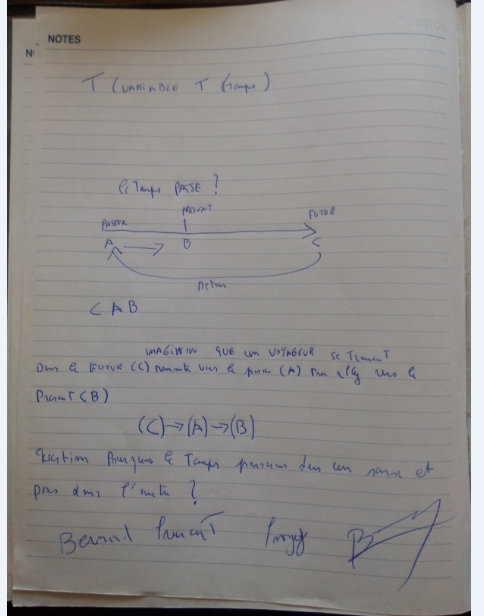 NOTES
N
T (VARIABLE T (Temps)
Le Temps PASSE ?
PRESENT
PASSER FUTUR
A B C
Retour
C A B
IMAGINON QUE un VOYAGEUR se Trouvent
Dans le FUTUR (C) remonte vers le passé (A) vers le
Present (B)
(C)→(A)→(B)
Question Pourquoi le Temps dans un sens et
pas dans l'autre ?
B